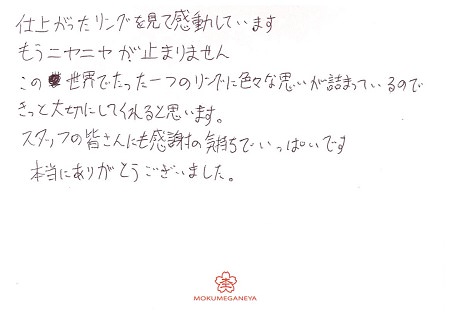 仕上がったリングを見て感動しています
もうニヤニヤが止まりません
この世界でたった一つのリングに色々な思いが詰まっているので
きっと大切にしてくれると思います。
スタッフの皆さんにも感謝の気持ちでいっぱいです
本当にありがとうございました。
MOKUMEGANEYA